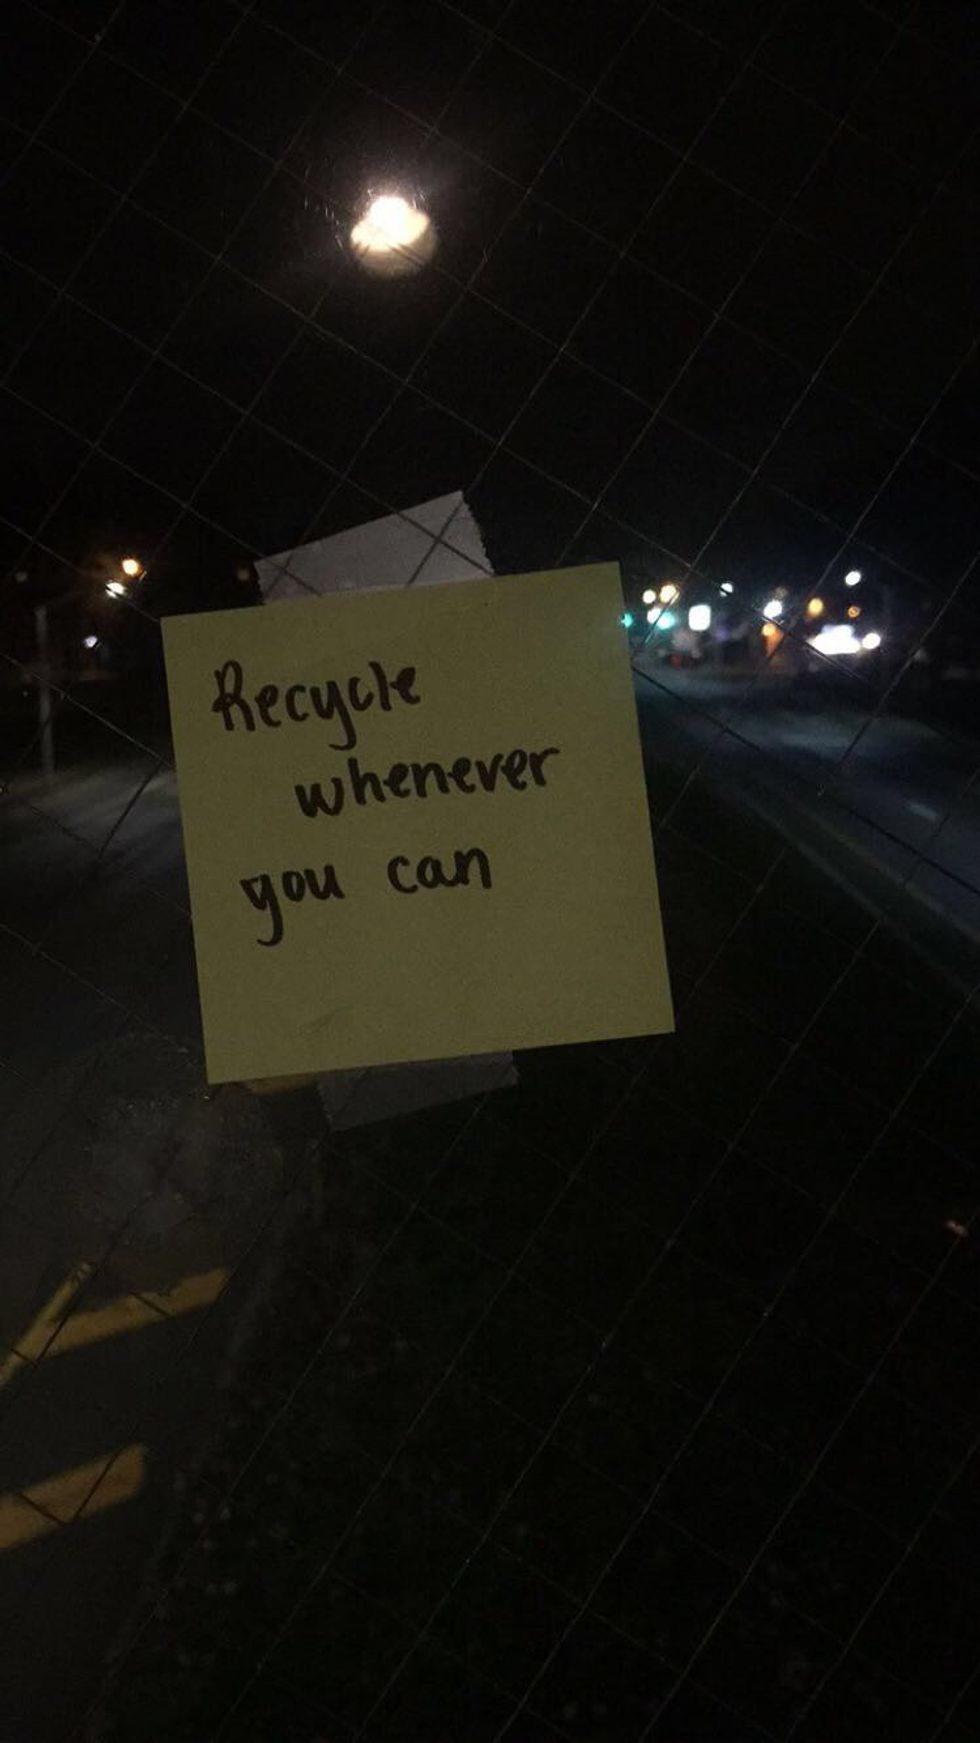 Recycle
whenever
you can